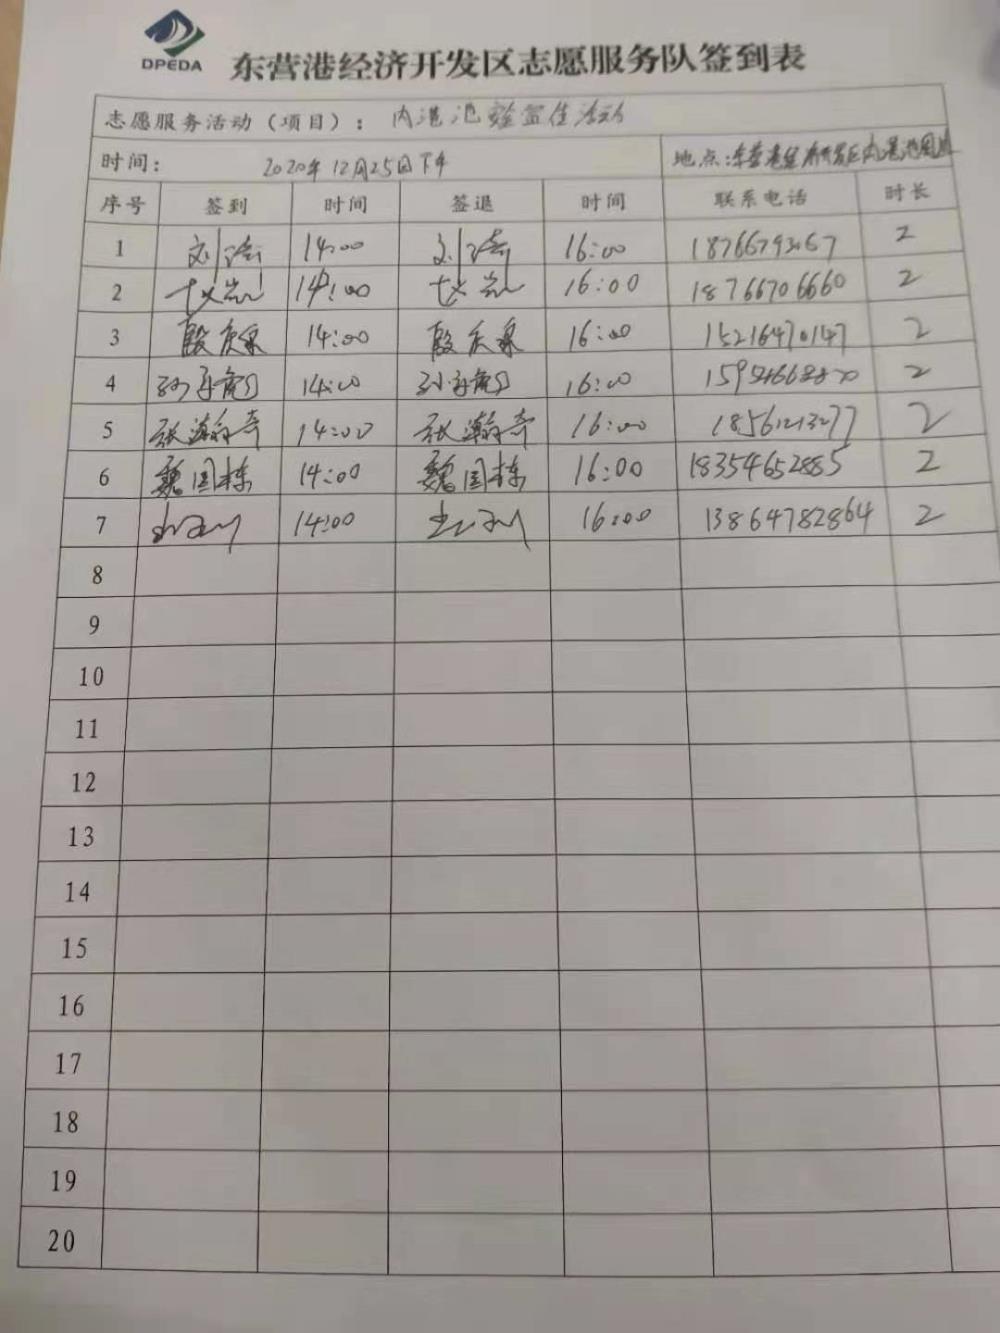 DPEDA
东营港经济开发区志愿服务队签到表
志愿服务活动（项目）： 内港池 活动
时间： 2020年12月25日下午 地点：东营港经济开发区内港池周边
序号 签到 时间 签退 时间 联系电话 时长
1 刘浩 14:00 刘浩 16:00 2
2 赵凯 14:00 赵凯 16:00 18766706660 2
3 殷庆泉 14:00 殷庆泉 16:00 15216470147 2
4 14:00 16:00 2
5 张瀚奇 14:00 张瀚奇 16:00 18561213277 2
6 魏国栋 14:00 魏国栋 16:00 18354652885 2
7 14:00 16:00 13864782864 2
8
9
10
11
12
13
14
15
16
17
18
19
20